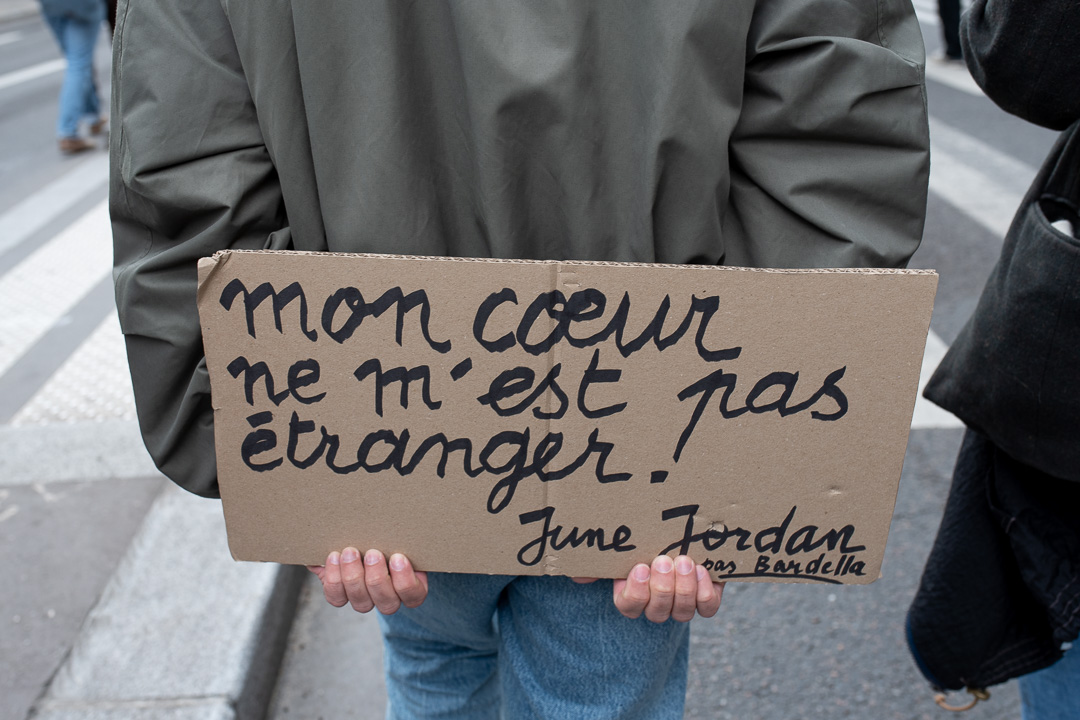 mon cœur
ne m'est pas
étranger.
June Jordan
pas Bardella